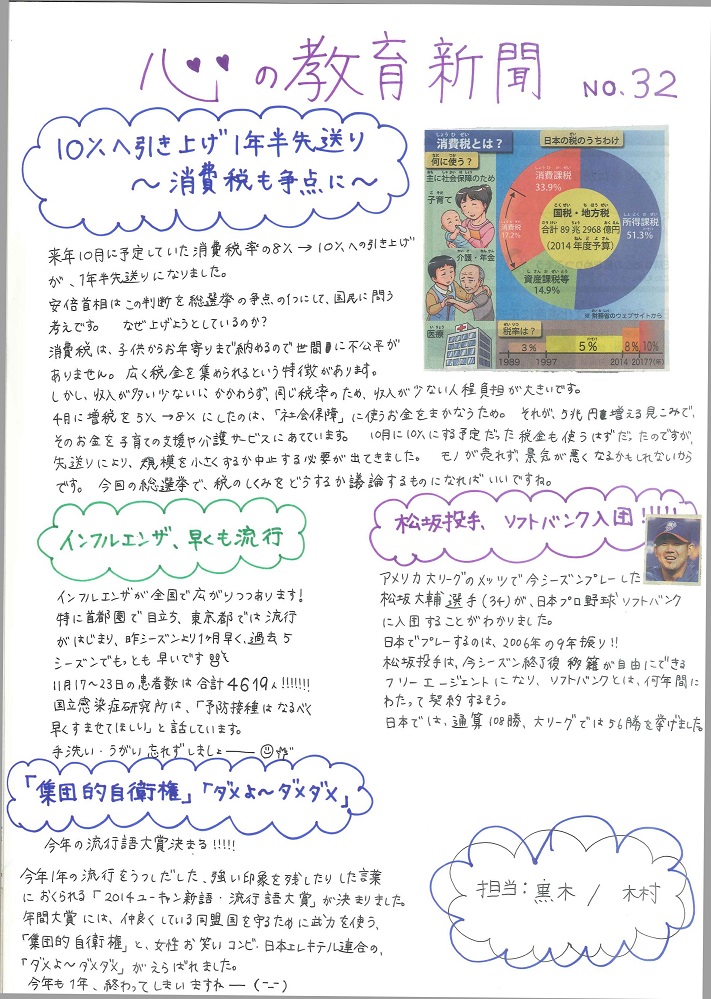 心の教育新聞 NO.32
10%へ引き上げ1年半先送り
～消費税も争点に～
しょうひぜい
消費税とは?
なに つか
何に使う?
おも しゃかいほしょう
主に社会保障のため
こそだ
子育て
かいご ねんきん
介護・年金
いりょう
医療
にほん ぜい
日本の税のうちわけ
消費課税
33.9%
消費税
17.2%
国税・地方税
合計89兆2968億円
(2014年度予算)
所得課税
51.3%
資産課税等
14.9%
※財務省のウェブサイトから
ぜいりつ
税率は?
3% 5% 8% 10%
1989 1997 2014 2017?(年)
来年10月に予定していた消費税率の8%→10%への引き上げ
が、1年半先送りになりました。
安倍首相はこの判断を総選挙の争点の1つにして、国民に問う
考えです。 なぜ上げようとしているのか?
消費税は、子供からお年寄りまで納めるので世間に不公平が
ありません。広く税金を集められるという特徴があります。
しかし、収入が多い少ないにかかわらず、同じ税率のため、収入が少ない人程負担が大きいです。
4月に増税を5%→8%にしたのは、「社会保障」に使うお金をまかなうため。 それが、5兆円増える見こみで、
そのお金を子育ての支援や介護サービスにあてています。 10月に10%にする予定だった税金も使うはずだったのですが、
先送りにより、規模を小さくするか中止する必要が出てきました。 モノが売れず、景気が悪くなるかもしれないから
です。 今回の総選挙で、税のしくみをどうするか議論するものになればいいですね。
インフルエンザ、早くも流行
インフルエンザが全国で広がりつつあります!
特に首都圏で目立ち、東京都では流行
がはじまり、昨シーズンより1ヶ月早く、過去5
シーズンでもっとも早いです
11月17〜23日の患者数は合計4619人!!!!!!!
国立感染症研究所は、「予防接種はなるべく
早くすませてほしい」と話しています。
手洗い・うがい忘れずしましょーーー
松坂投手、ソフトバンク入団!!!!!
アメリカ大リーグのメッツで今シーズンプレーした
松坂大輔選手(34)が、日本プロ野球ソフトバンク
に入団することがわかりました。
日本でプレーするのは、2006年の9年振り!!
松坂投手は、今シーズン終了後移籍が自由にできる
フリーエージェントになり、ソフトバンクとは、何年間に
わたって契約するそう。
日本では、通算108勝、大リーグでは56勝を挙げました。
「集団的自衛権」「ダメよ〜ダメダメ」
今年の流行語大賞決まる!!!!!
今年1年の流行をうつしだした、強い印象を残したりした言葉
におくられる「2014ユーキャン新語・流行語大賞」が決まりました。
年間大賞には、仲良くしている同盟国を守るために武力を使う、
「集団的自衛権」と、女性お笑いコンビ・日本エレキテル連合の、
「ダメよ〜ダメダメ」がえらばれました。
今年も1年、終わってしまいますねー(ー_ー)
担当:黒木 / 木村